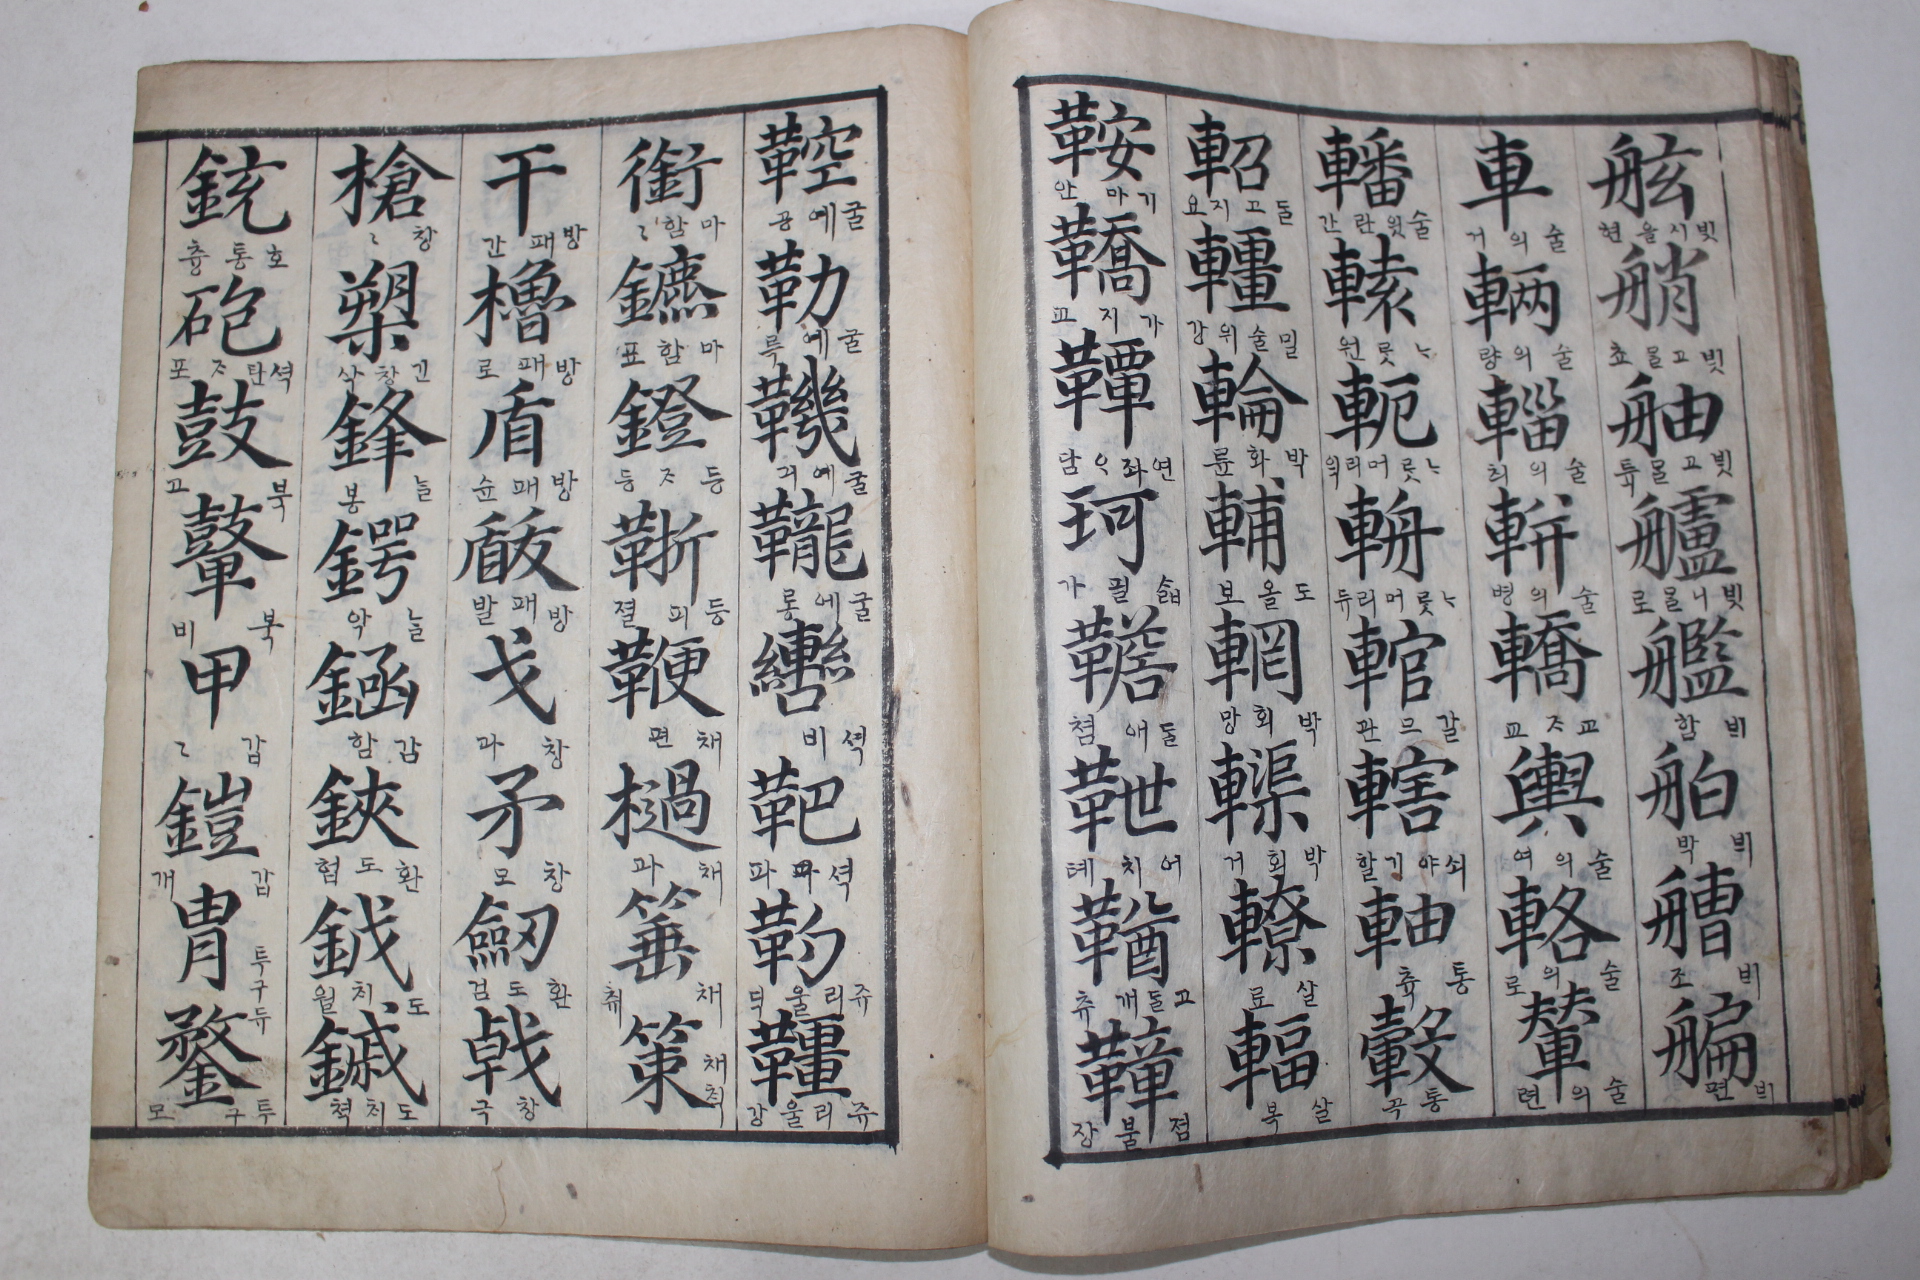 舷 빗시올현 艄 빗고믈쵸 舳 빗고믈튝 艫 빗니믈로 艦 비함 舶 븨박 艚 비조 艑 븨편
車 술의거 輛 술의량 輜 술의츼 軿 술의병 轎 교ᄌ교 輿 술의여 輅 술의로 輦 술의련
轓 술윗란간 轅 원 軛 머리익 輈 머리듀 輨 갈므관 轄 쇠야기할 軸 통츅 轂 통곡
軺 돌고지요 밀술위강 輪 박화륜 輔 도올보 輞 박회망 박회거 轑 살료 輻 살복
鞍 기마안 鞽 가지교 연좌 담 珂 가 돌애쳠 어치톄 고돌개츄 졈불장
鞚 굴에공 勒 굴에륵 굴에긔 굴에롱 轡 셕비 靶 셕파 쥬리울뎍 韁 쥬리울강
銜 마함 鑣 마함표 鐙 등ᄌ등 등피졀 鞭 채편 檛 채과 채츄 策 채칙
干 방패간 櫓 방패로 盾 방패슌 瞂 방패발 戈 창과 矛 창모 劒 환도검 戟 창극
槍 창 槊 긴창삭 鋒 늘봉 鍔 늘악 감함 鋏 환도협 鉞 도치월 鏚 도치쳑
銃 호통츙 砲 셕탄ᄌ포 鼓 북고 鼙 북비 甲 갑 鎧 갑개 冑 투구듀 鍪 투구모